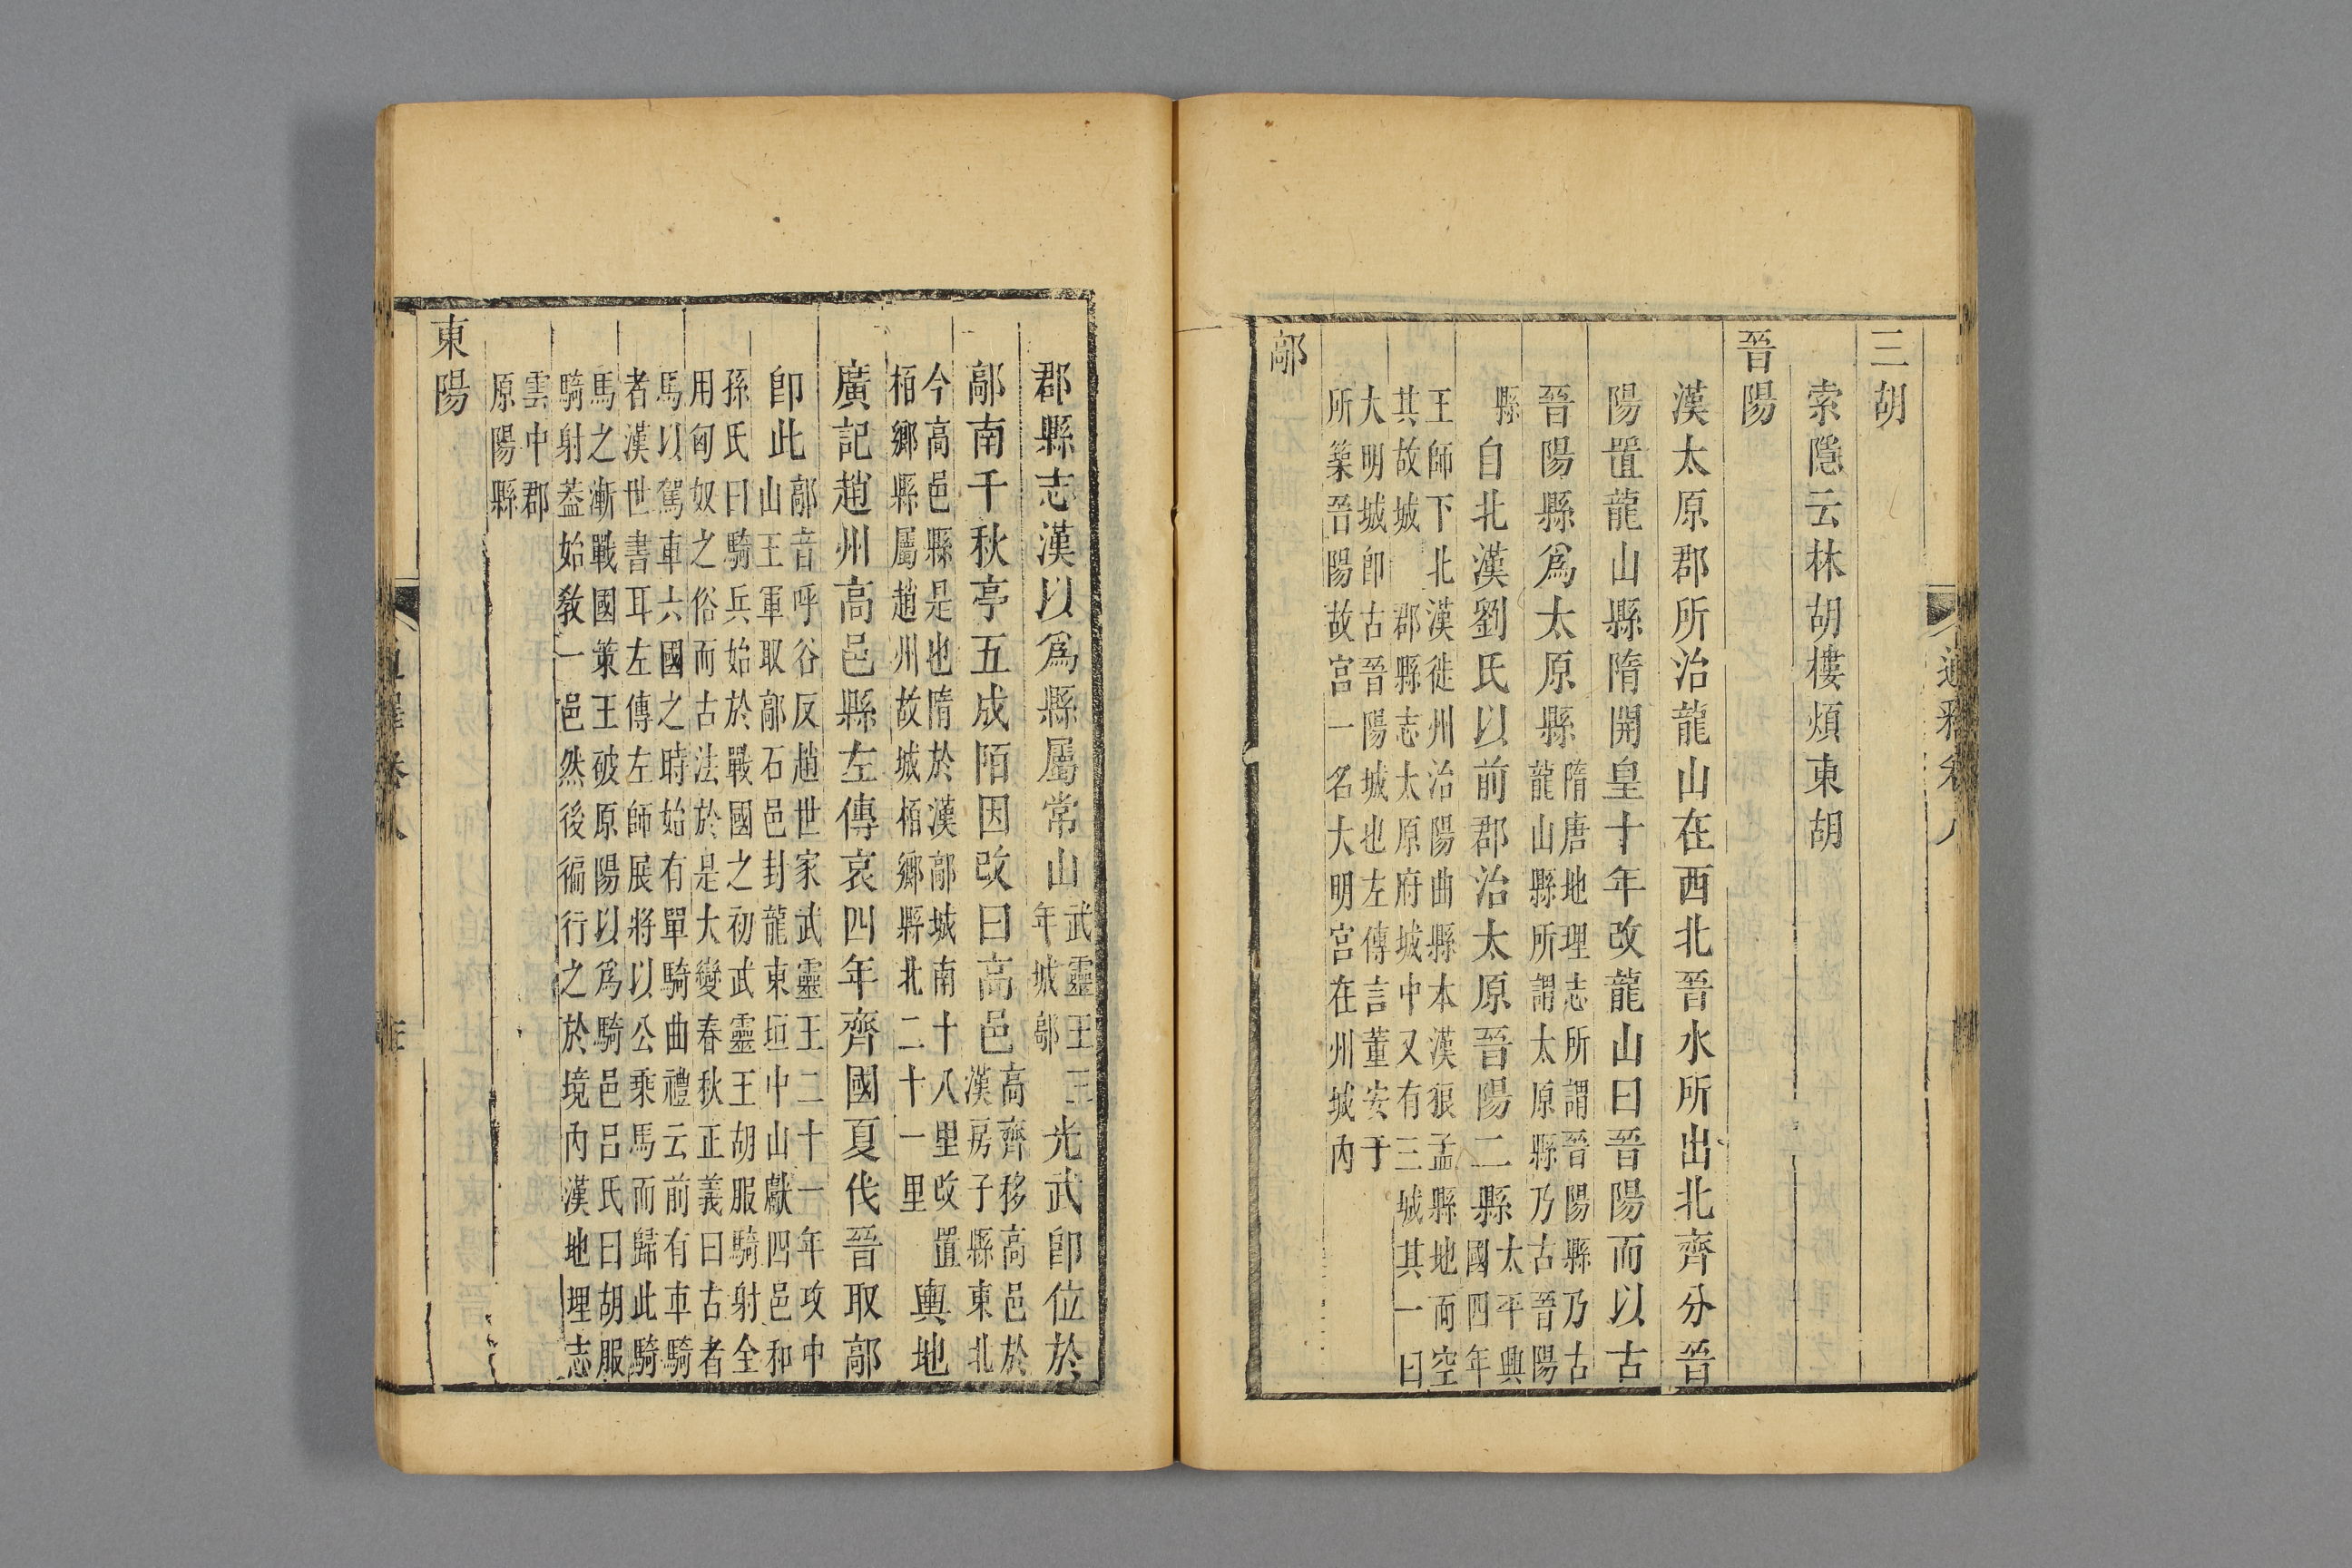 通釋卷八
三胡
索隱云林胡樓煩東胡
晉陽
漢太原郡所治龍山在西北晉水所出北齊分晉
陽置龍山縣隋開皇十年改龍山曰晉陽而以古
晉陽縣爲太原縣隋唐地理志所謂晉陽縣乃古
龍山縣所謂太原縣乃古晉陽
縣自北漢劉氏以前郡治太原晉陽二縣太平興
國四年
王師下北漢徙州治陽曲縣本漢狼孟縣地而空
其故城 郡縣志太原府城中又有三城其一曰
大明城卽古晉陽城也左傳言董安于
所築晉陽故宫一名大明宫在州城内
鄗
郡縣志漢以爲縣屬常山武靈王三
年城鄗
光武卽位於
鄗南千秋亭五成陌因改曰高邑高齊移高邑於
漢房子縣東北
今高邑縣是也隋於漢鄗城南十八里改置
栢鄉縣屬趙州故城栢鄉縣北二十一里
輿地
廣記趙州高邑縣左傳哀四年齊國夏伐晉取鄗
卽此鄗音呼谷反趙世家武靈王二十一年攻中
山王軍取鄗石邑封龍東垣中山獻四邑和
孫氏曰騎兵始於戰國之初武靈王胡服騎射全
用匈奴之俗而古法於是大變春秋正義曰古者
馬以駕車六國之時始有單騎曲禮云前有車騎
者漢世書耳左傳左師展將以公乘馬而歸此騎
馬之漸戰國策王破原陽以爲騎邑呂氏曰胡服
騎射葢始敎一邑然後徧行之於境内漢地理志
雲中郡
原陽縣
東陽